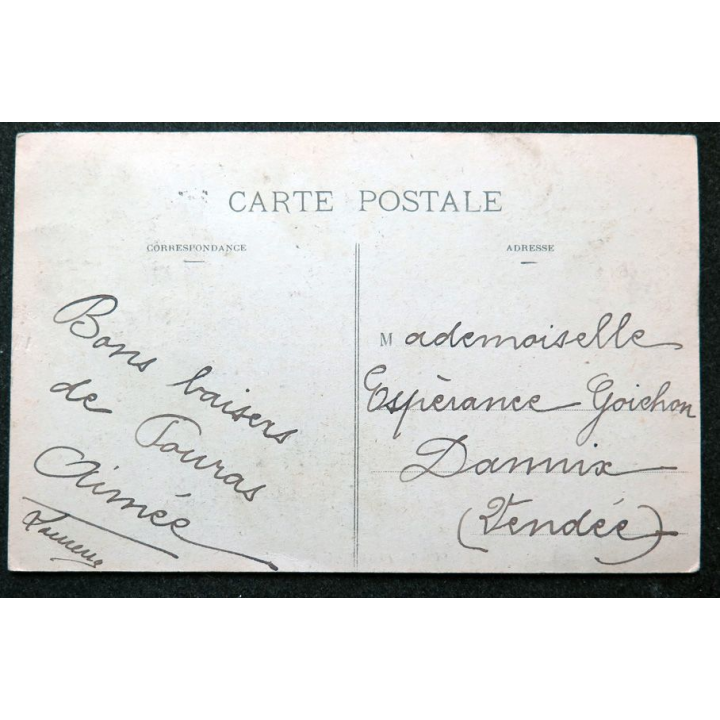 CARTE POSTALE
CORRESPONDANCE
ADRESSE
Bons baisers
de Touras
Aimée
Mademoiselle
Espèrance Goichon
Damvix
(Vendée)